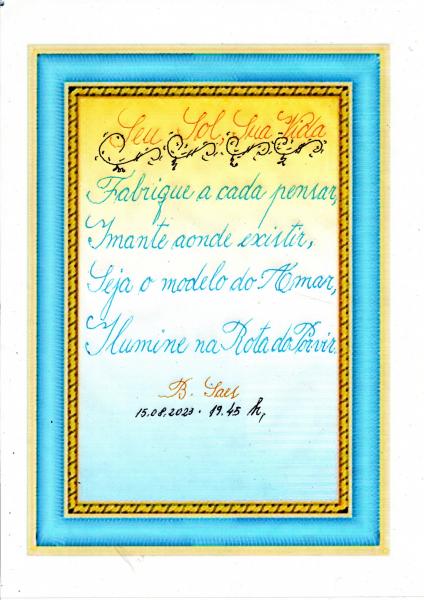 Seu Sol, Sua Vida
Fabrique a cada pensar,
Imante aonde existir,
Seja o modelo do Amar,
Ilumine na Rota do Porvir.
B. Saes
15.08.2023. 19.45 h,